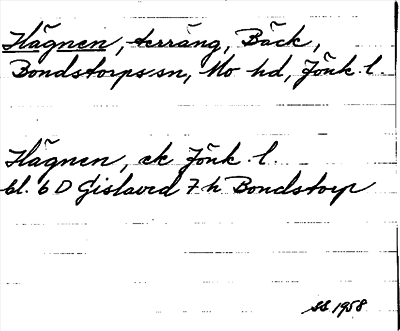 Hägnen, terräng, Bäck,
Bondstorps sn, Mo hd, Jönk. l.
Hägnen, ek Jönk. l.
bl. 6 D Gislaved 7 h Bondstorp
SS 1958